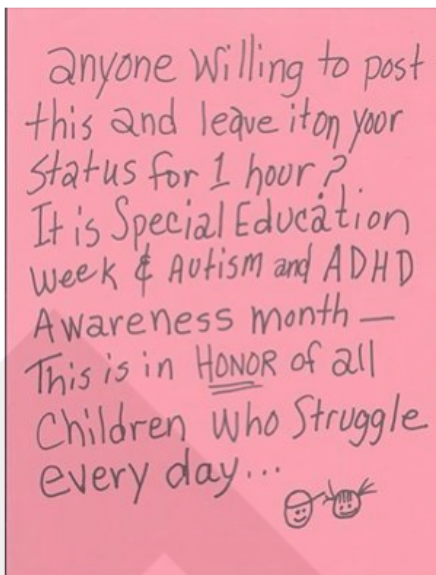 anyone willing to post
this and leave it on your
status for 1 hour?
It is Special Education
Week & Autism and ADHD
Awareness month —
This is in HONOR of all
Children who Struggle
every day...